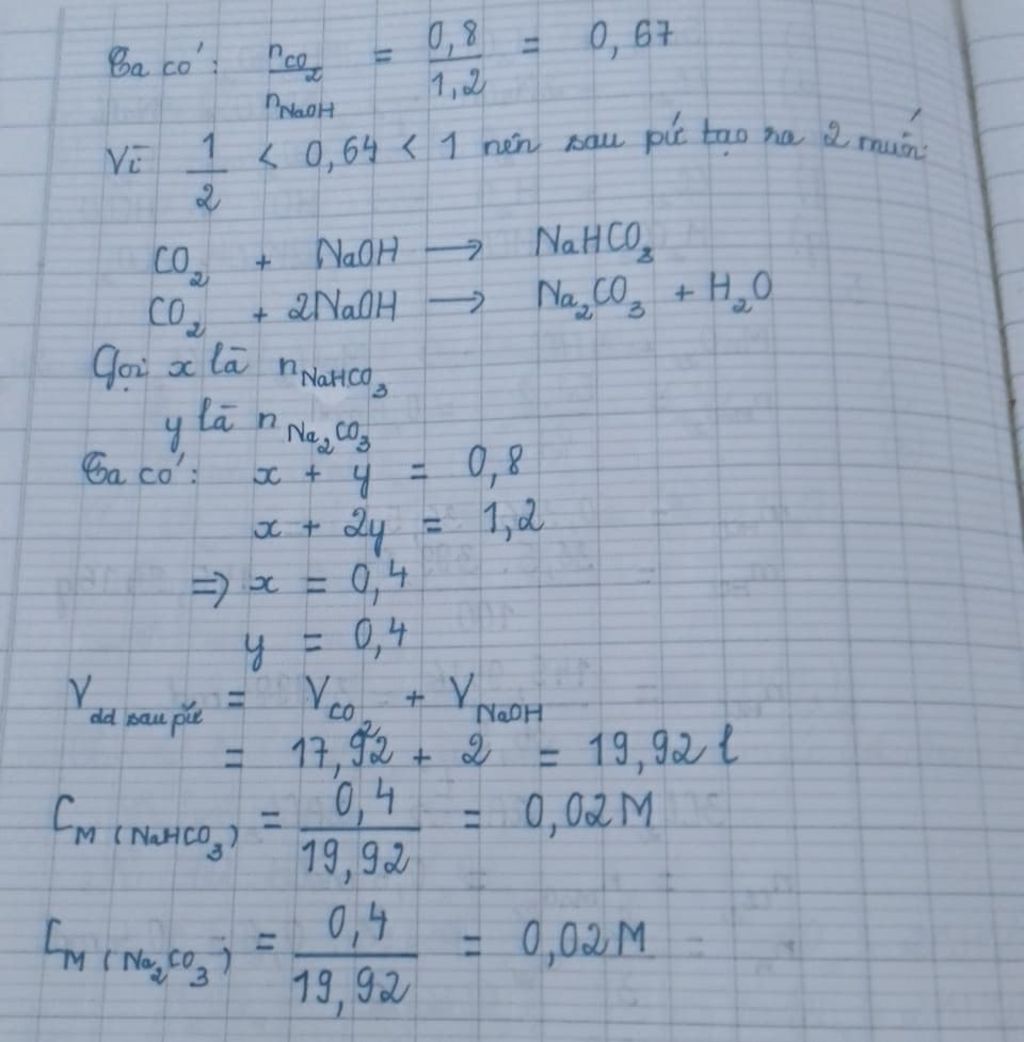 Ta có: nCO₂/nNaOH = 0,8/1,2 = 0,67
Vì 1/2 < 0,64 < 1 nên sau pứ tạo ra 2 muối:
CO₂ + NaOH → NaHCO₃
CO₂ + 2NaOH → Na₂CO₃ + H₂O
Gọi x là nNaHCO₃
y là nNa₂CO₃
Ta có: x + y = 0,8
x + 2y = 1,2
=> x = 0,4
y = 0,4
Vdd sau pứ = VCO₂ + VNaOH
= 17,92 + 2 = 19,92 l
CM (NaHCO₃) = 0,4/19,92 = 0,02M
CM (Na₂CO₃) = 0,4/19,92 = 0,02M